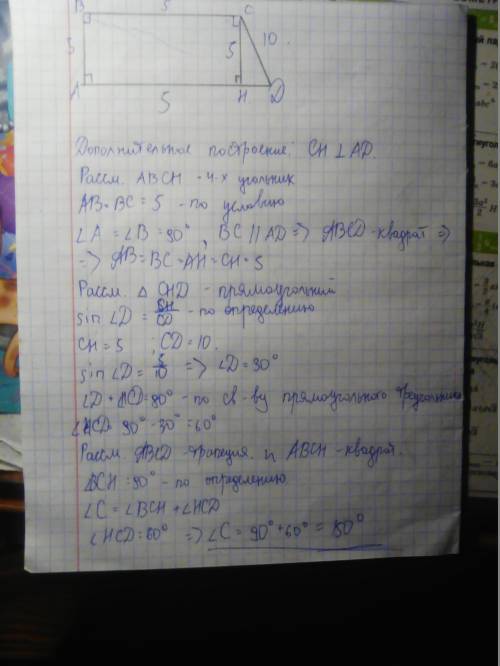 B 5 C
5 5 10.
A 5 H D
Дополнительное построение: CH ⊥ AD.
Рассм. ABCH - 4-х угольник
AB = BC = 5 - по условию
∠A = ∠B = 90°, BC || AD => ABCD - квадрат =>
=> AB = BC = AH = CH = 5
Рассм. △ CHD - прямоугольний
sin ∠D = CH/CD - по определению
CH = 5 ; CD = 10.
sin ∠D = 5/10 => ∠D = 30°
∠D + ∠HCD = 90° - по св-ву прямоугольного треугольника
∠HCD = 90° - 30° = 60°
Рассм ABCD - трапеция и ABCH - квадрат.
∠BCH = 90° - по определению
∠C = ∠BCH + ∠HCD
∠HCD = 60° => ∠C = 90° + 60° = 150°